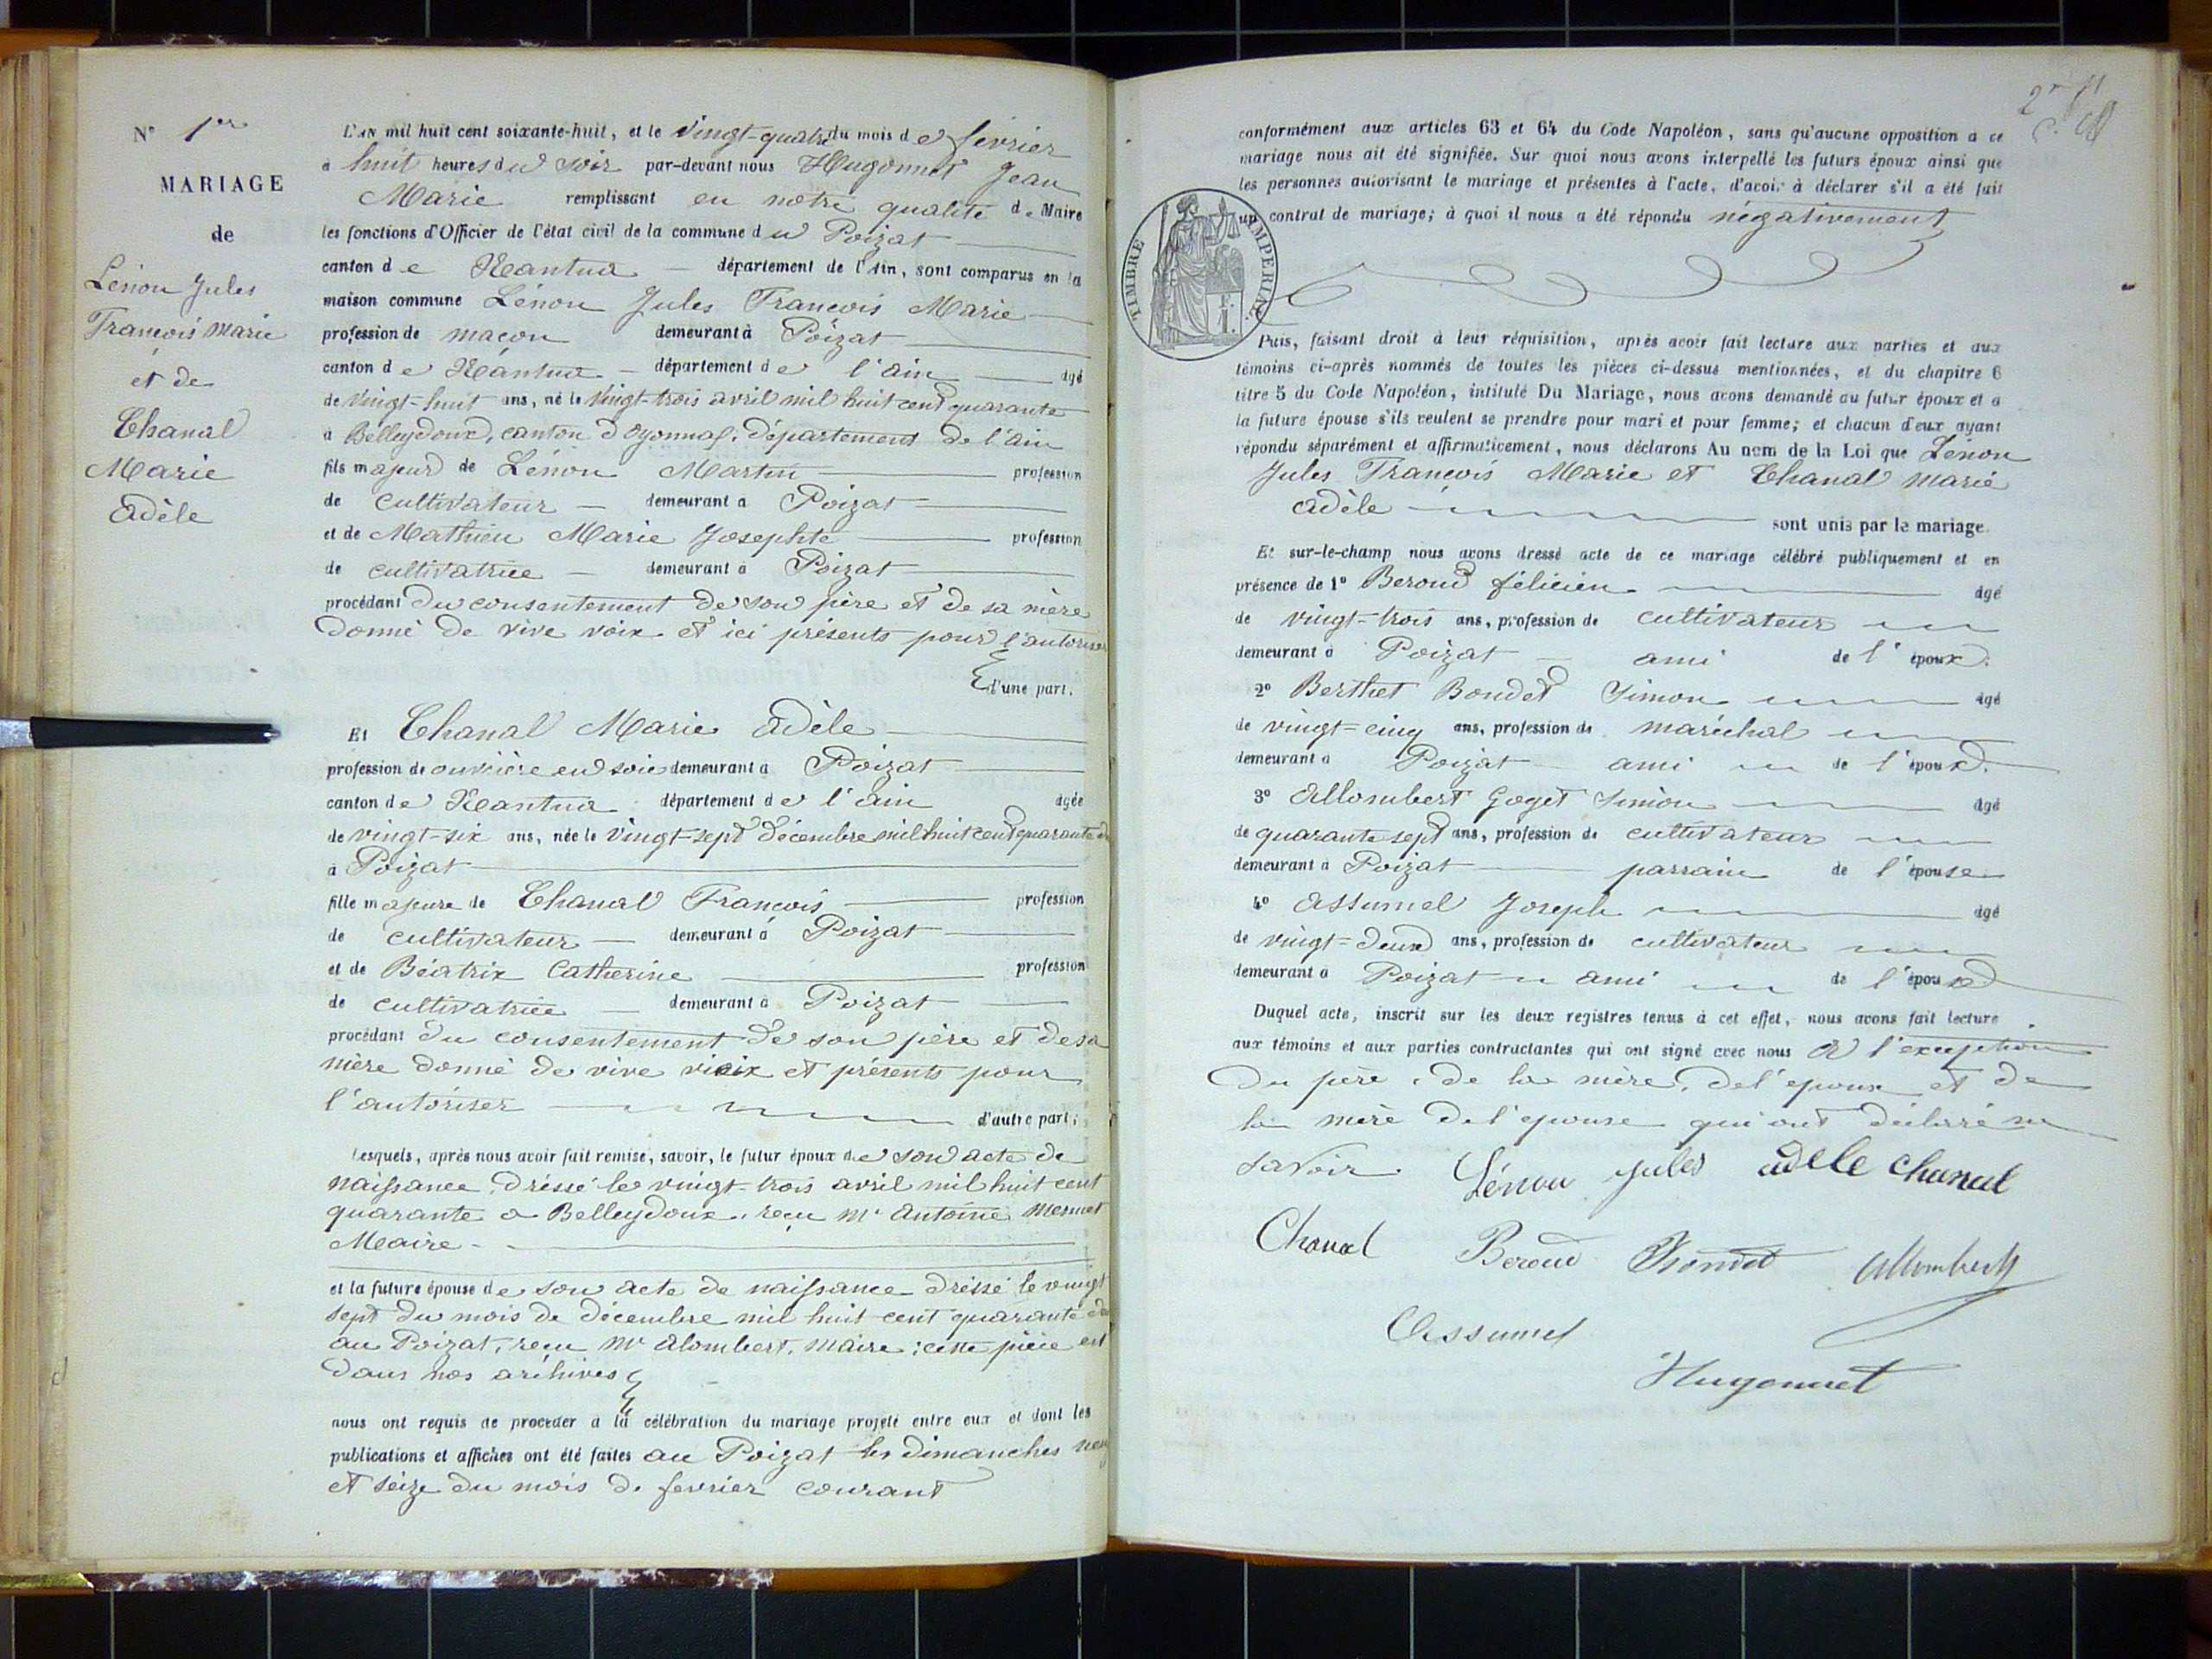 N° 1er
MARIAGE
de
Lénon Jules
François Marie
et de
Chanal
Marie
Adèle
L'AN mil huit cent soixante-huit, et le vingt-quatre du mois de février
à huit heures du soir par-devant nous Hugonnet Jean
Marie remplissant en notre qualité de Maire
les fonctions d'Officier de l'état civil de la commune du Poizat
canton de Nantua département de l'Ain, sont comparus en la
maison commune Lénon Jules François Marie
profession de maçon demeurant à Poizat
canton de Nantua département de l'ain âgé
de vingt-huit ans, né le vingt-trois avril mil huit cent quarante
à Belleydoux, canton d'Oyonnax, département de l'ain
fils majeur de Lénon Martin profession
de cultivateur demeurant à Poizat
et de Mathieu Marie Josephte profession
de cultivatrice demeurant à Poizat
procédant du consentement de son père et de sa mère
donné de vive voix et ici présents pour l'autoriser
d'une part.
Et Chanal Marie Adèle
profession de ouvrière en soie demeurant à Poizat
canton de Nantua département de l'ain âgée
de vingt-six ans, née le vingt-sept décembre mil huit cent quarante
à Poizat
fille majeure de Chanal François profession
de cultivateur demeurant à Poizat
et de Béatrix Catherine profession
de cultivatrice demeurant à Poizat
procédant du consentement de son père et de sa
mère donné de vive voix et présents pour
l'autoriser d'autre part;
Lesquels, après nous avoir fait remise, savoir, le futur époux de son acte de
naissance dressé le vingt-trois avril mil huit cent
quarante a Belleydoux, reçu Mr Antoine Mermet
Maire
et la future épouse de son acte de naissance dressé le vingt
sept du mois de décembre mil huit cent quarante
au Poizat, reçu Mr Alombert, maire; cette pièce est
dans nos archives
nous ont requis de procéder à la célébration du mariage projeté entre eux et dont les
publications et affiches ont été faites au Poizat les dimanches neuf
et seize du mois de fevrier courant
conformément aux articles 63 et 64 du Code Napoléon, sans qu'aucune opposition à ce
mariage nous ait été signifiée. Sur quoi nous avons interpellé les futurs époux ainsi que
les personnes autorisant le mariage et présentes à l'acte, d'avoir à déclarer s'il a été fait
un contrat de mariage; à quoi il nous a été répondu négativement
TIMBRE IMPERIAL
1 F.
Puis, faisant droit à leur réquisition, après avoir fait lecture aux parties et aux
témoins ci-après nommés de toutes les pièces ci-dessus mentionnées, et du chapitre 6
titre 5 du Code Napoléon, intitulé Du Mariage, nous avons demandé au futur époux et a
la future épouse s'ils veulent se prendre pour mari et pour femme; et chacun d'eux ayant
répondu séparément et affirmativement, nous déclarons Au nom de la Loi que Lénon
Jules François Marie et Chanal Marie
Adèle sont unis par le mariage.
Et sur-le-champ nous avons dressé acte de ce mariage célébré publiquement et en
présence de 1° Beroud félicien âgé
de vingt-trois ans, profession de cultivateur
demeurant à Poizat ami de l'époux.
2° Berthet Bondet Simon âgé
de vingt-cinq ans, profession de maréchal
demeurant à Poizat ami de l'époux.
3° Allombert Goget Simon âgé
de quarante sept ans, profession de cultivateur
demeurant à Poizat parrain de l'épouse
4° Assumel Joseph âgé
de vingt-deux ans, profession de cultivateur
demeurant à Poizat ami de l'époux
Duquel acte, inscrit sur les deux registres tenus à cet effet, nous avons fait lecture
aux témoins et aux parties contractantes qui ont signé avec nous à l'exception
du père, de la mère, de l'epoux et de
la mère de l'epouse qui ont déclaré ne
savoir. Lénon Jules adele chanal
Chanal Beroud Bondet Allombert
Assumel
Hugonnet